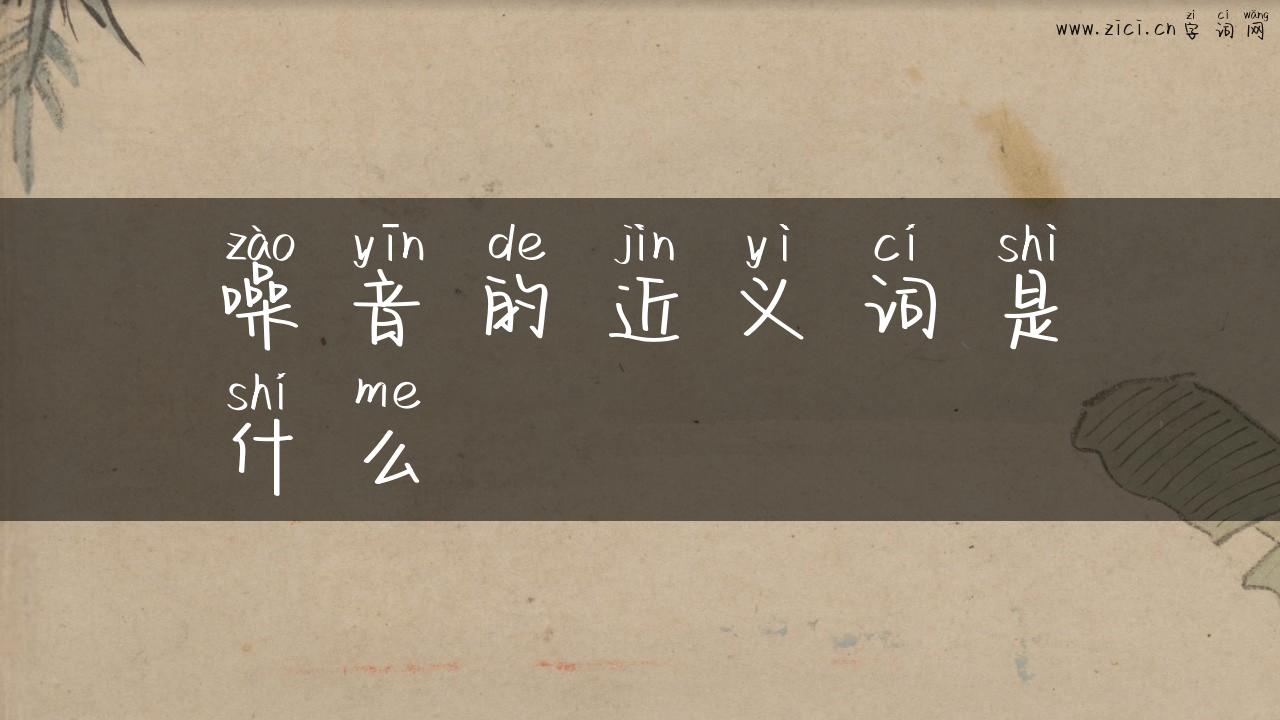 zì cí wǎng
www.zici.cn 字 词 网
zào yīn de jìn yì cí shì
噪 音 的 近 义 词 是
shí me
什 么